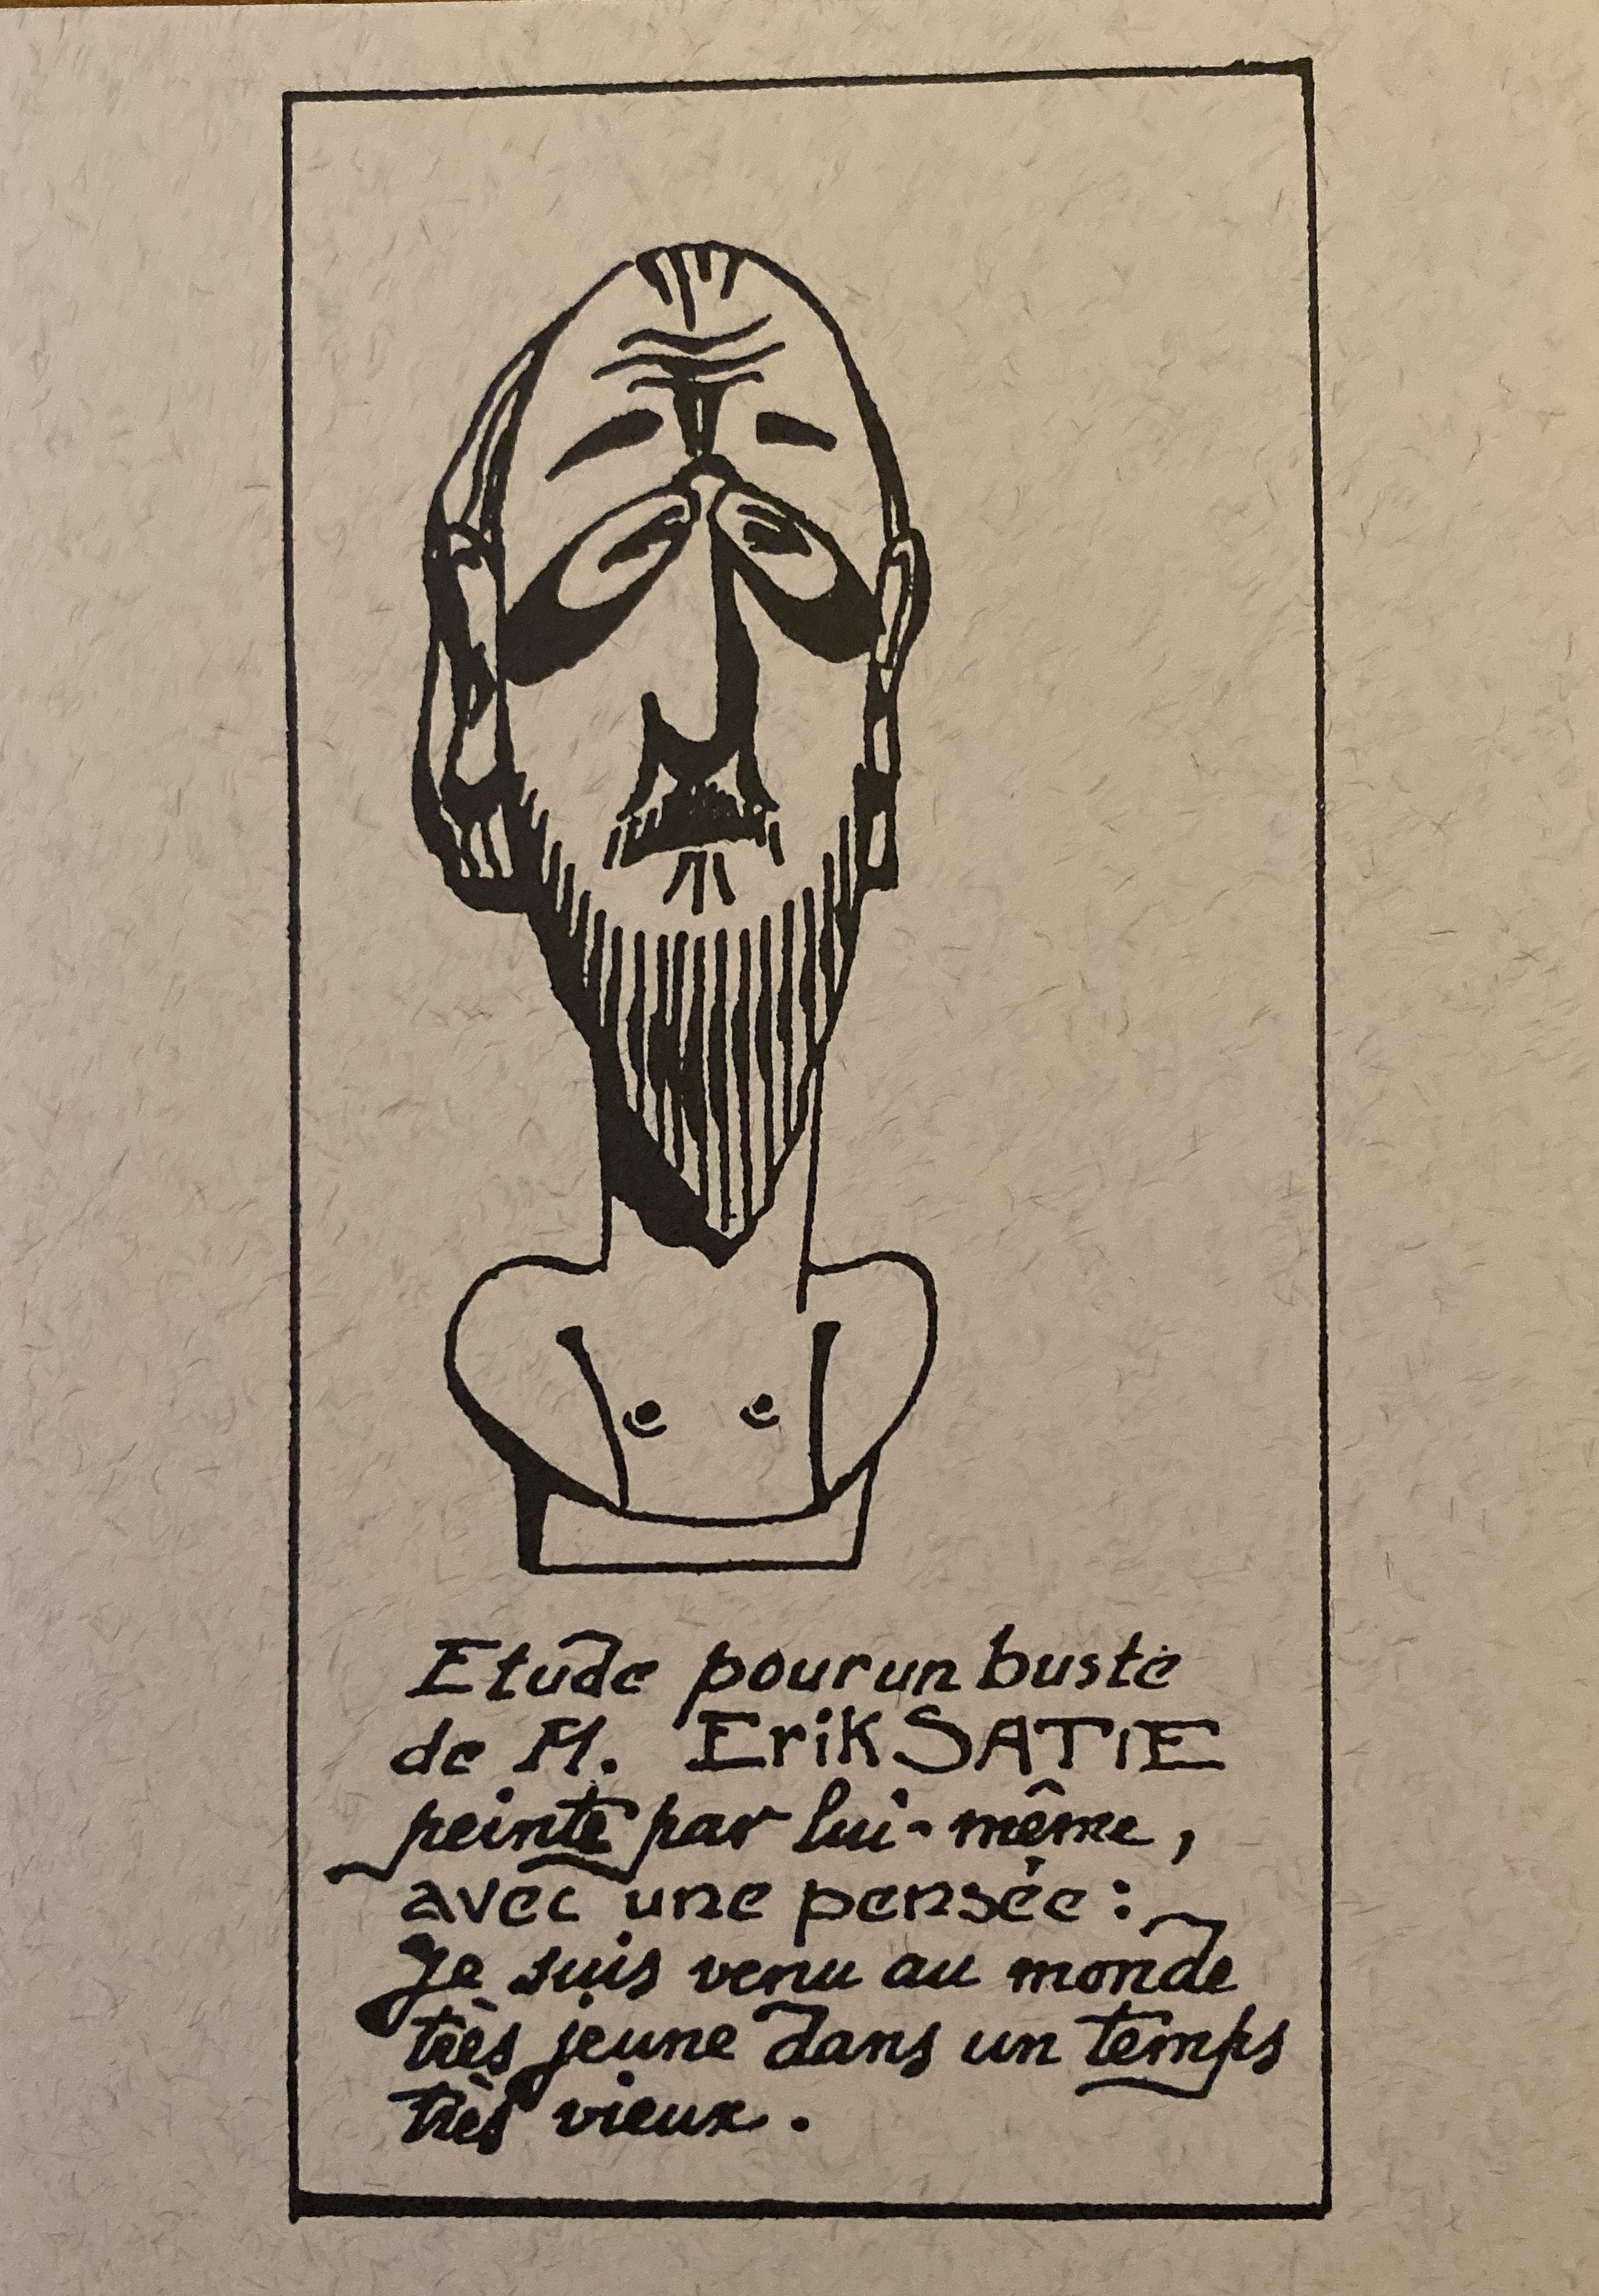 Etude pour un buste
de M. Erik SATIE
peinte par lui-même,
avec une pensée:
Je suis venu au monde
très jeune dans un temps
très vieux.